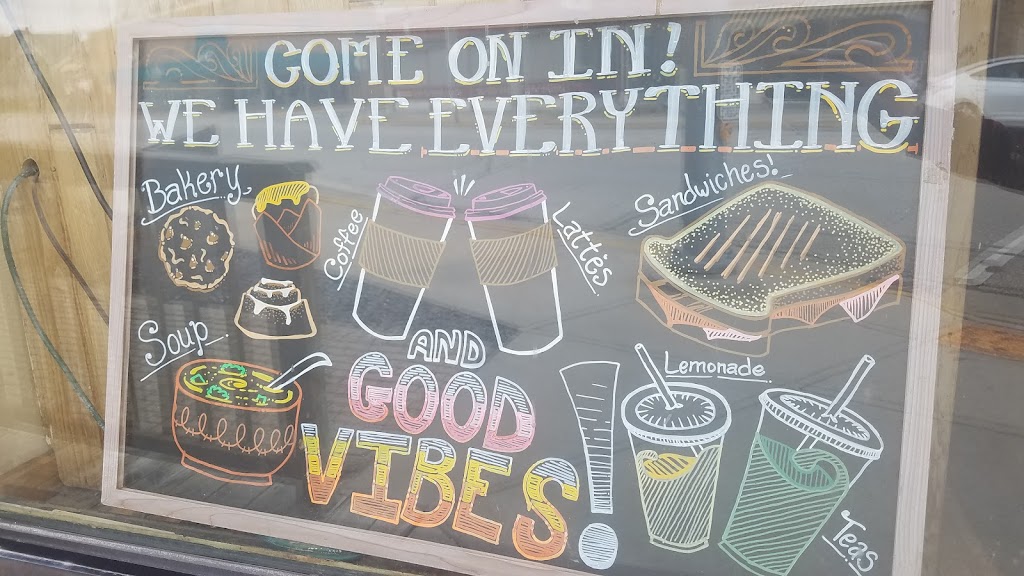 COME ON IN!
WE HAVE EVERYTHING
Bakery
Coffee
Lattes
Sandwiches!
Soup
AND
GOOD
VIBES!
Lemonade
Teas